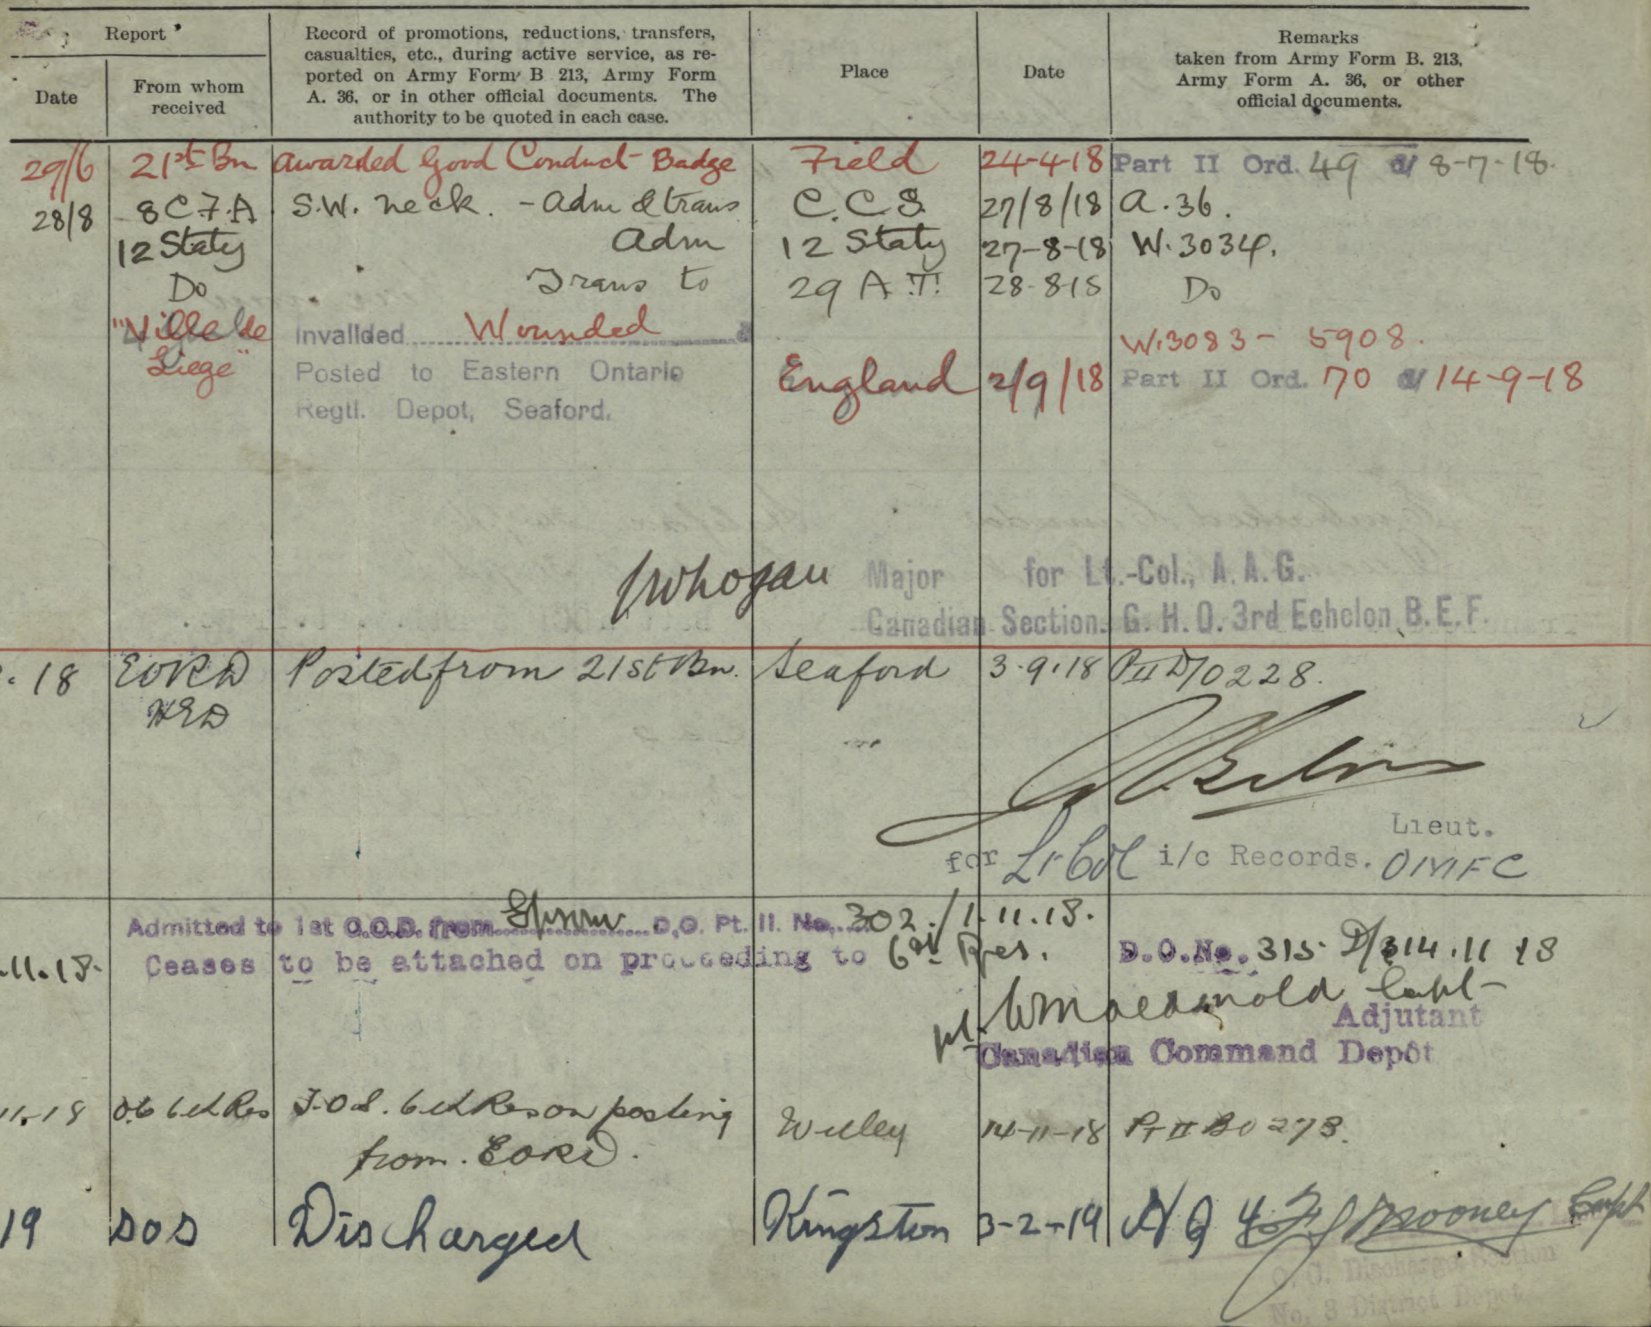 Report
Date
From whom
received
Record of promotions, reductions, transfers,
casualties, etc., during active service, as re-
ported on Army Form B 213, Army Form
A. 36, or in other official documents. The
authority to be quoted in each case.
Place
Date
Remarks
taken from Army Form B. 213,
Army Form A. 36, or other
official documents.
29/6 21st Bn Awarded Good Conduct Badge Field 24-4-18 Part II Ord. 49 d/ 8-7-18.
28/8 8 C.F.A S.W. neck. - Adm & trans C.C.S. 27/8/18 A.36.
12 Staty Adm 12 Staty 27-8-18 W.3034.
Do Trans to 29 A.T. 28-8-18 Do
"Ville de Invalided Wounded W.3083 - 5908.
Liege" Posted to Eastern Ontario England 2/9/18 Part II Ord. 70 d/ 14-9-18
Regtl. Depot, Seaford.
Major for Lt.-Col., A.A.G.
Canadian Section. G. H. Q. 3rd Echelon B.E.F.
. 18 EORD Posted from 21st Bn. Seaford 3.9.18 PII DO 228.
Lieut.
for Lt Col i/c Records. OMFC
Admitted to 1st C.C.D. from Epsom D.O. Pt. II. No. 302./1.11.18.
.11.18. Ceases to be attached on proceeding to 6th Res. D.O.No. 315 D/ 14.11.18
Capt
Adjutant
Canadian Command Depôt
11-18 OC 6th Res T.O.S. 6th Res on posting Witley 14-11-18 Pt II DO 273.
from EORD.
19 SOS Discharged Kingston 3-2-19 Mooney Capt
O. C. Discharge Section
No. 3 District Depot